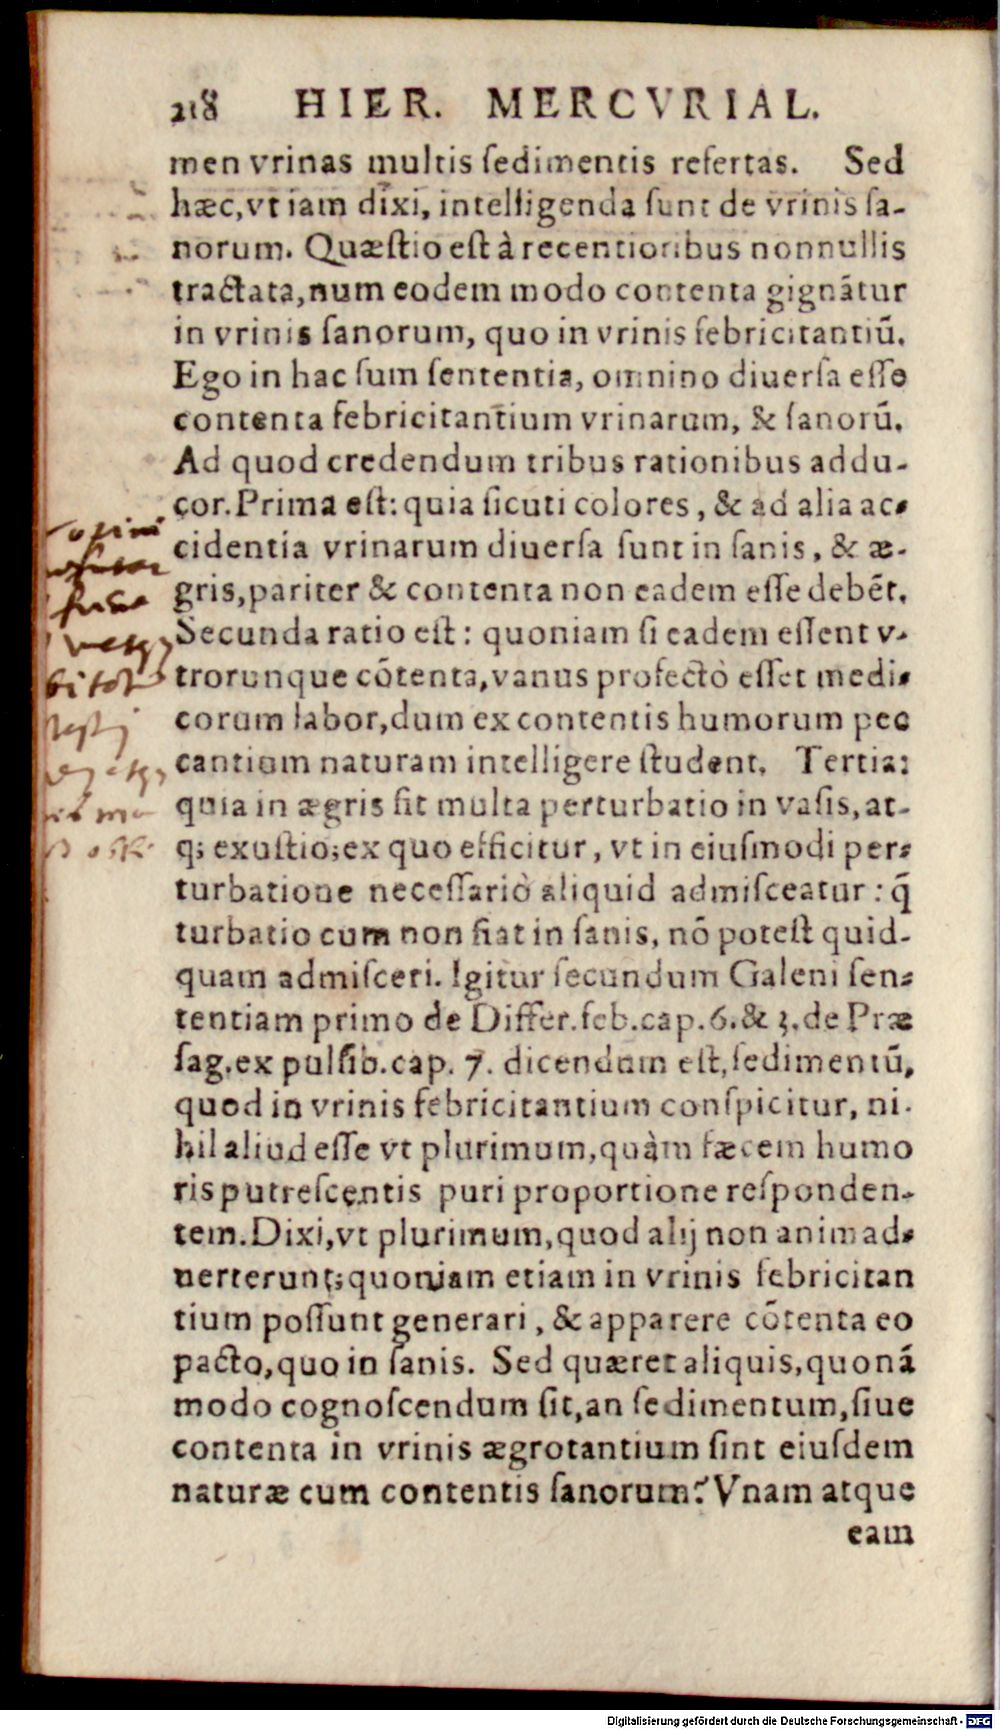 218 HIER. MERCVRIAL.
men vrinas multis ſedimentis refertas. Sed
hæc, vt iam dixi, intelligenda ſunt de vrinis ſa-
norum. Quæſtio eſt à recentioribus nonnullis
tractata, num eodem modo contenta gignãtur
in vrinis ſanorum, quo in vrinis febricitantiũ.
Ego in hac ſum ſententia, omnino diuerſa eſſe
contenta febricitantium vrinarum, & ſanorũ.
Ad quod credendum tribus rationibus addu-
cor. Prima eſt: quia ſicuti colores, & ad alia ac-
cidentia vrinarum diuerſa ſunt in ſanis, & æ-
gris, pariter & contenta non eadem eſſe debẽt.
Secunda ratio eſt: quoniam ſi eadem eſſent v-
trorunque cõtenta, vanus profectò eſſet medi-
corum labor, dum ex contentis humorum pec
cantium naturam intelligere ſtudent. Tertia:
quia in ægris fit multa perturbatio in vaſis, at-
q; exuſtio; ex quo efficitur, vt in eiuſmodi per-
turbatione neceſſariò aliquid admiſceatur: q̃
turbatio cum non fiat in ſanis, nõ poteſt quid-
quam admiſceri. Igitur ſecundum Galeni ſen-
tentiam primo de Differ. feb. cap. 6. & 3. de Præ
ſag. ex pulſib. cap. 7. dicendum eſt, ſedimentũ,
quod in vrinis febricitantium conſpicitur, ni-
hil aliud eſſe vt plurimum, quàm fæcem humo
ris putreſcentis puri proportione reſponden-
tem. Dixi, vt plurimum, quod alij non animad-
uerterunt; quoniam etiam in vrinis febricitan
tium poſſunt generari, & apparere cõtenta eo
pacto, quo in ſanis. Sed quæret aliquis, quonã
modo cognoſcendum ſit, an ſedimentum, ſiue
contenta in vrinis ægrotantium ſint eiuſdem
naturæ cum contentis ſanorum? Vnam atque
eam
Digitalisierung gefördert durch die Deutsche Forschungsgemeinschaft - DFG